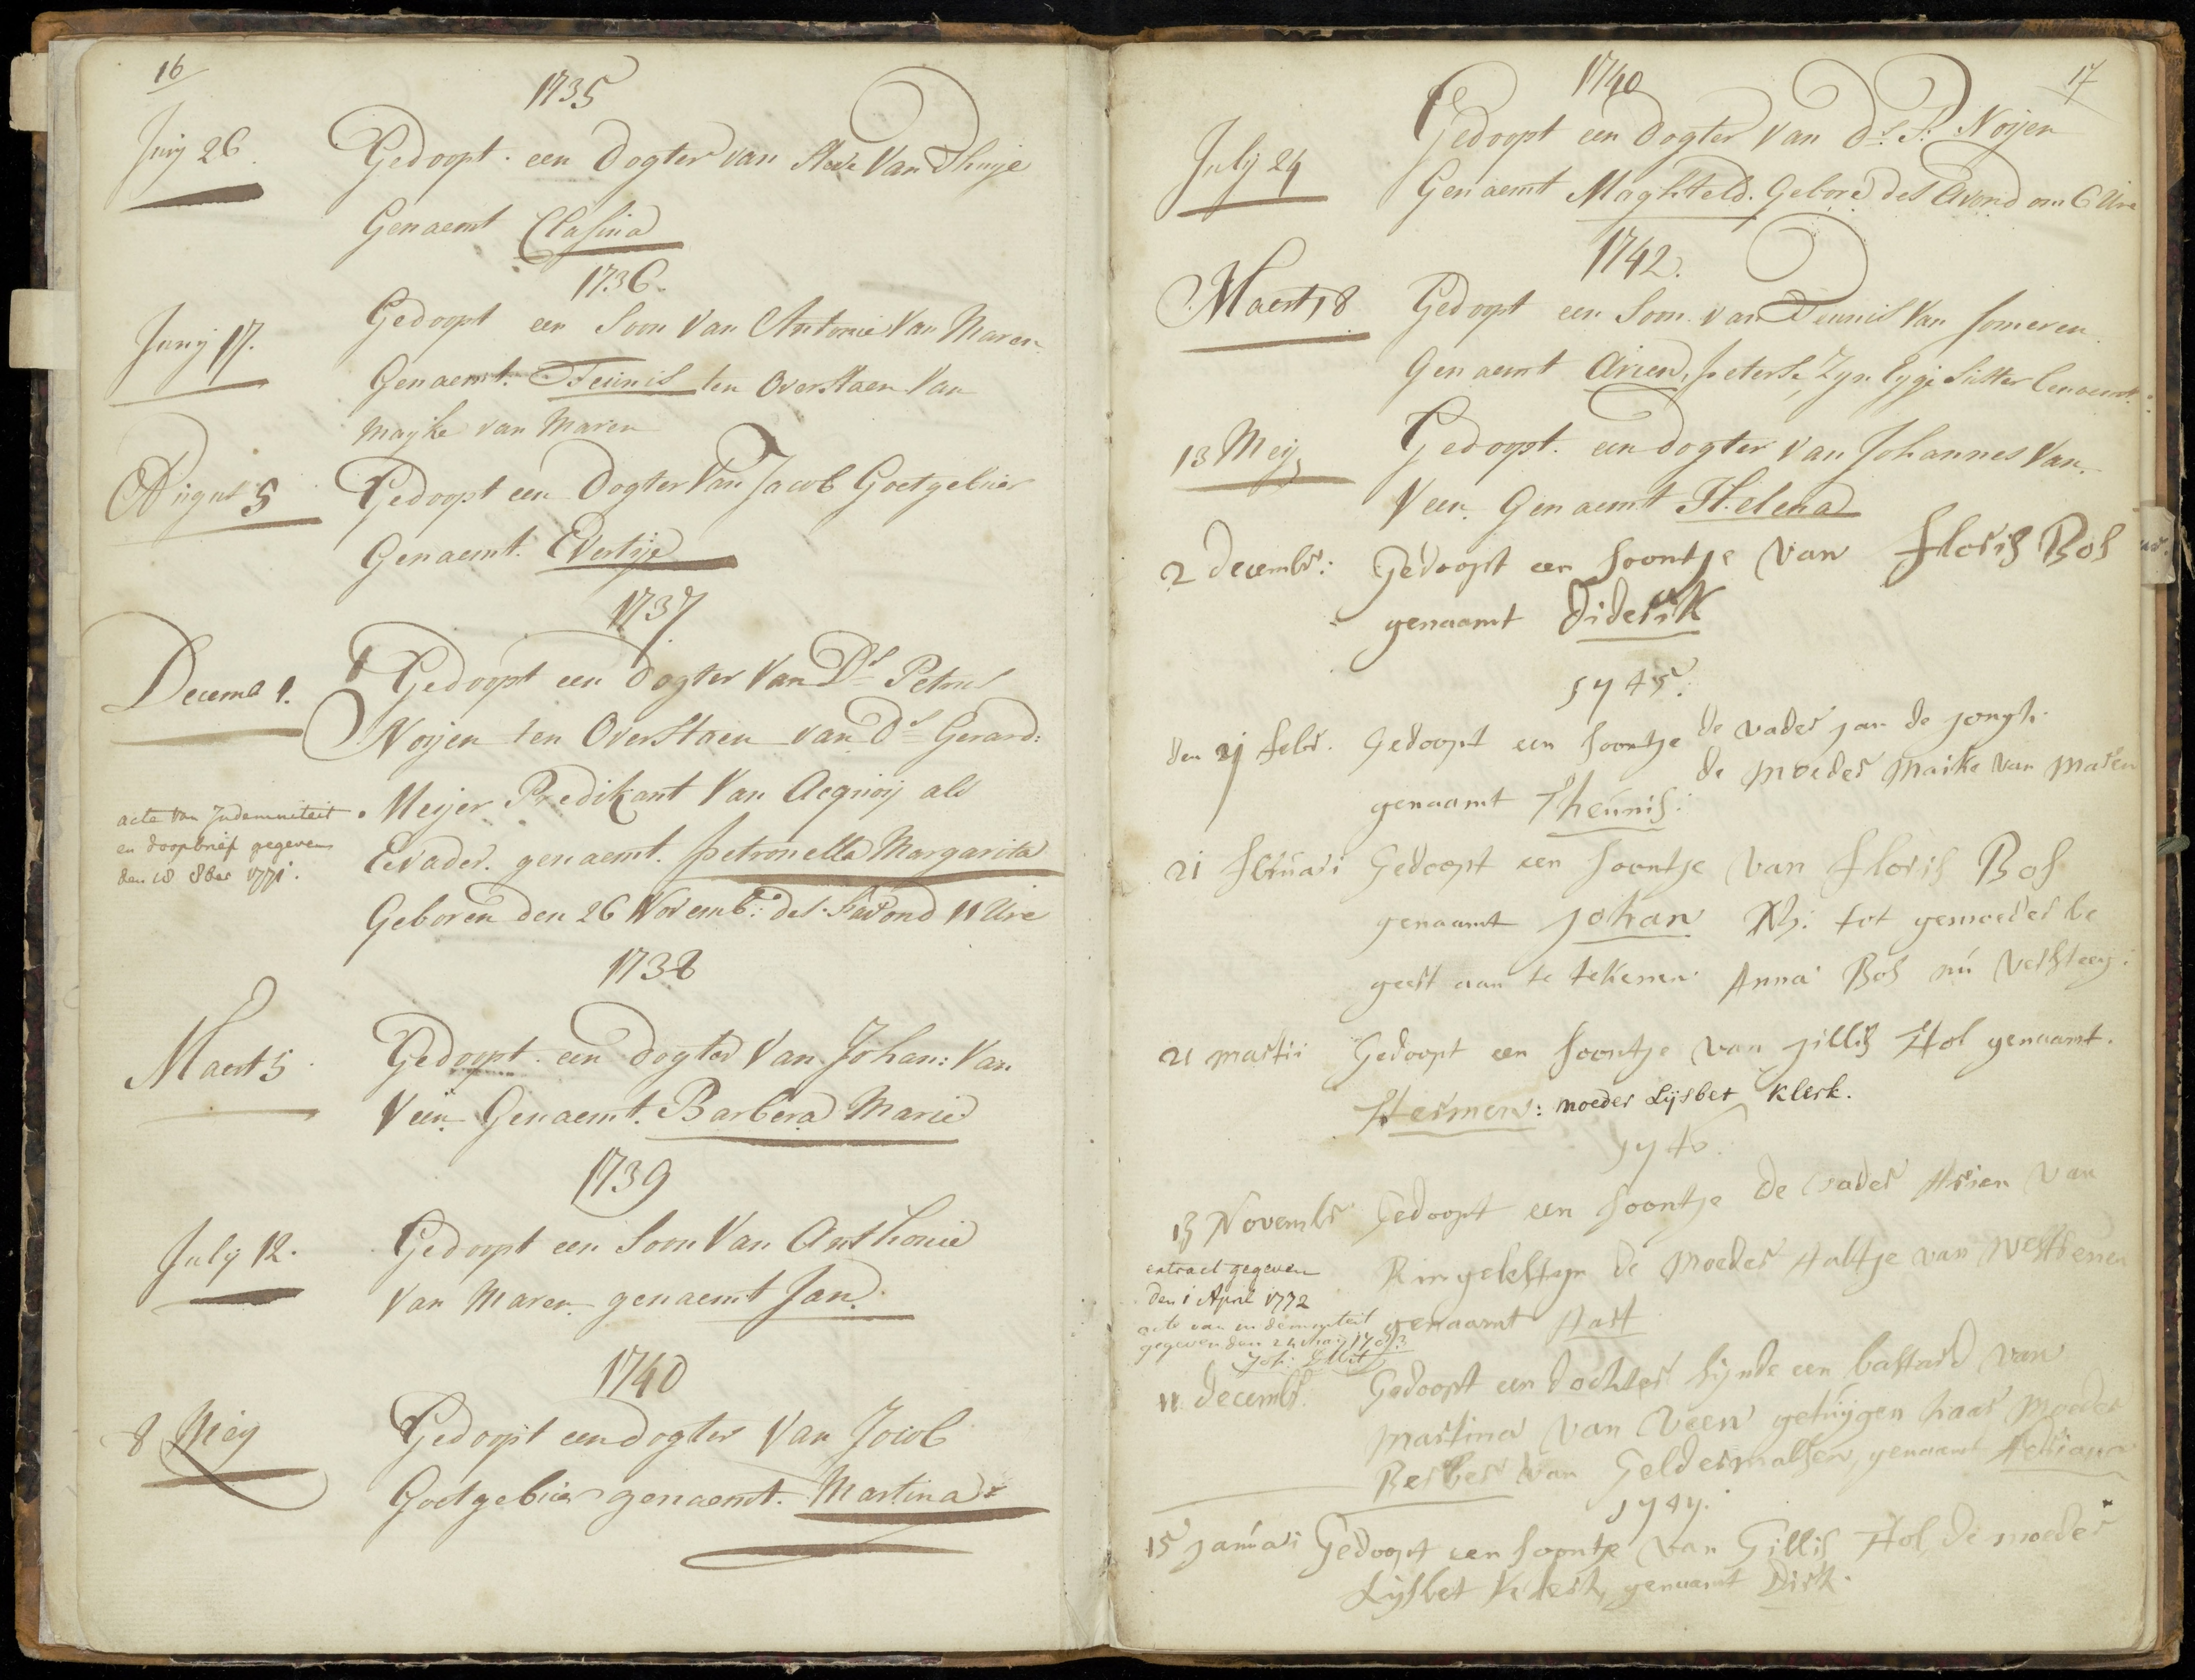 16
1735
Junij 26. Gedoopt. een Dogter van Van Thuije
Genaemt Clasina
1736.
Junij 17. Gedoopt een Soon Van Antonie Van Maren
Genaemt. Teunis ten Overstaen Van
Mayke van Maren
Augus 5 Gedoopt een Dogter Van Jacob Goetgebuer
Genaemt. Evertije
1737.
Decemb 1. Gedoopt een Dogter Van Ds Petrus
Noijen ten Overstaen van Ds Gerard:
Meijer Predikant Van Acquoij als
acte van Indemniteit
en doopbrief gegeven
den 18 8ber 1771.
genaemt. Petronella Margarita
Geboren den 26 Novemb: des 11 Ure
1738
Maert 5. Gedoopt. een Dogter Van Johan: Van
Veen Genaemt. Barbera Marie
1739
July 12. Gedoopt een Soon Van Anthonie
Van Maren genaemt Jan.
1740
8 Meij Gedoopt een dogter Van Jacob
Goetgebuer genaemt. Martina
17
1740
July 24 Gedoopt een Dogter Van Ds. P: Noijen
Genaemt Maghteld. Gebore des Avond om 6 Ure
1742.
Maert 18 Gedoopt een Soon van Teunis Van Someren
Genaemt Arien, Peterse, Zyn Suster
13 Meij Gedoopt. een dogter Van Johannes Van
Veen. Genaemt Helena
2 decembr: Gedoopt een soontje van Floris Bos
genaamt Diderik
1745.
den 21 febr. Gedoopt een soontje de vader jan de jongh.
de moeder Maike van Maren
genaamt Theunis:
21 februari Gedoopt een soontje van Floris Bos
genaamt Johan NB: tot gemoeder be
geert aan te tekenen Anna Bos nu Versteeg:
21 martii Gedoopt een soontje van jillis Hol genaamt.
Hermen: moeder Lijsbet Klerk.
1746.
13 Novembr Gedoopt een soontje de vader Arien van
Ringelesteyn de Moeder Aaltje van Westrenen
extract gegeven
den 1 April 1772
acte van indemniteit
gegeven den
genaamt Aart
11 decembr. Gedoopt een dochter sijnde een bastard van
Martina van Veen getuijgen haar Moeder
Berber van Geldermalsen, genaamt Adriana
1747.
15 januari Gedoopt een soontje van Gillis Hol, de moeder
Lijsbet Klerk, genaamt Dirk.